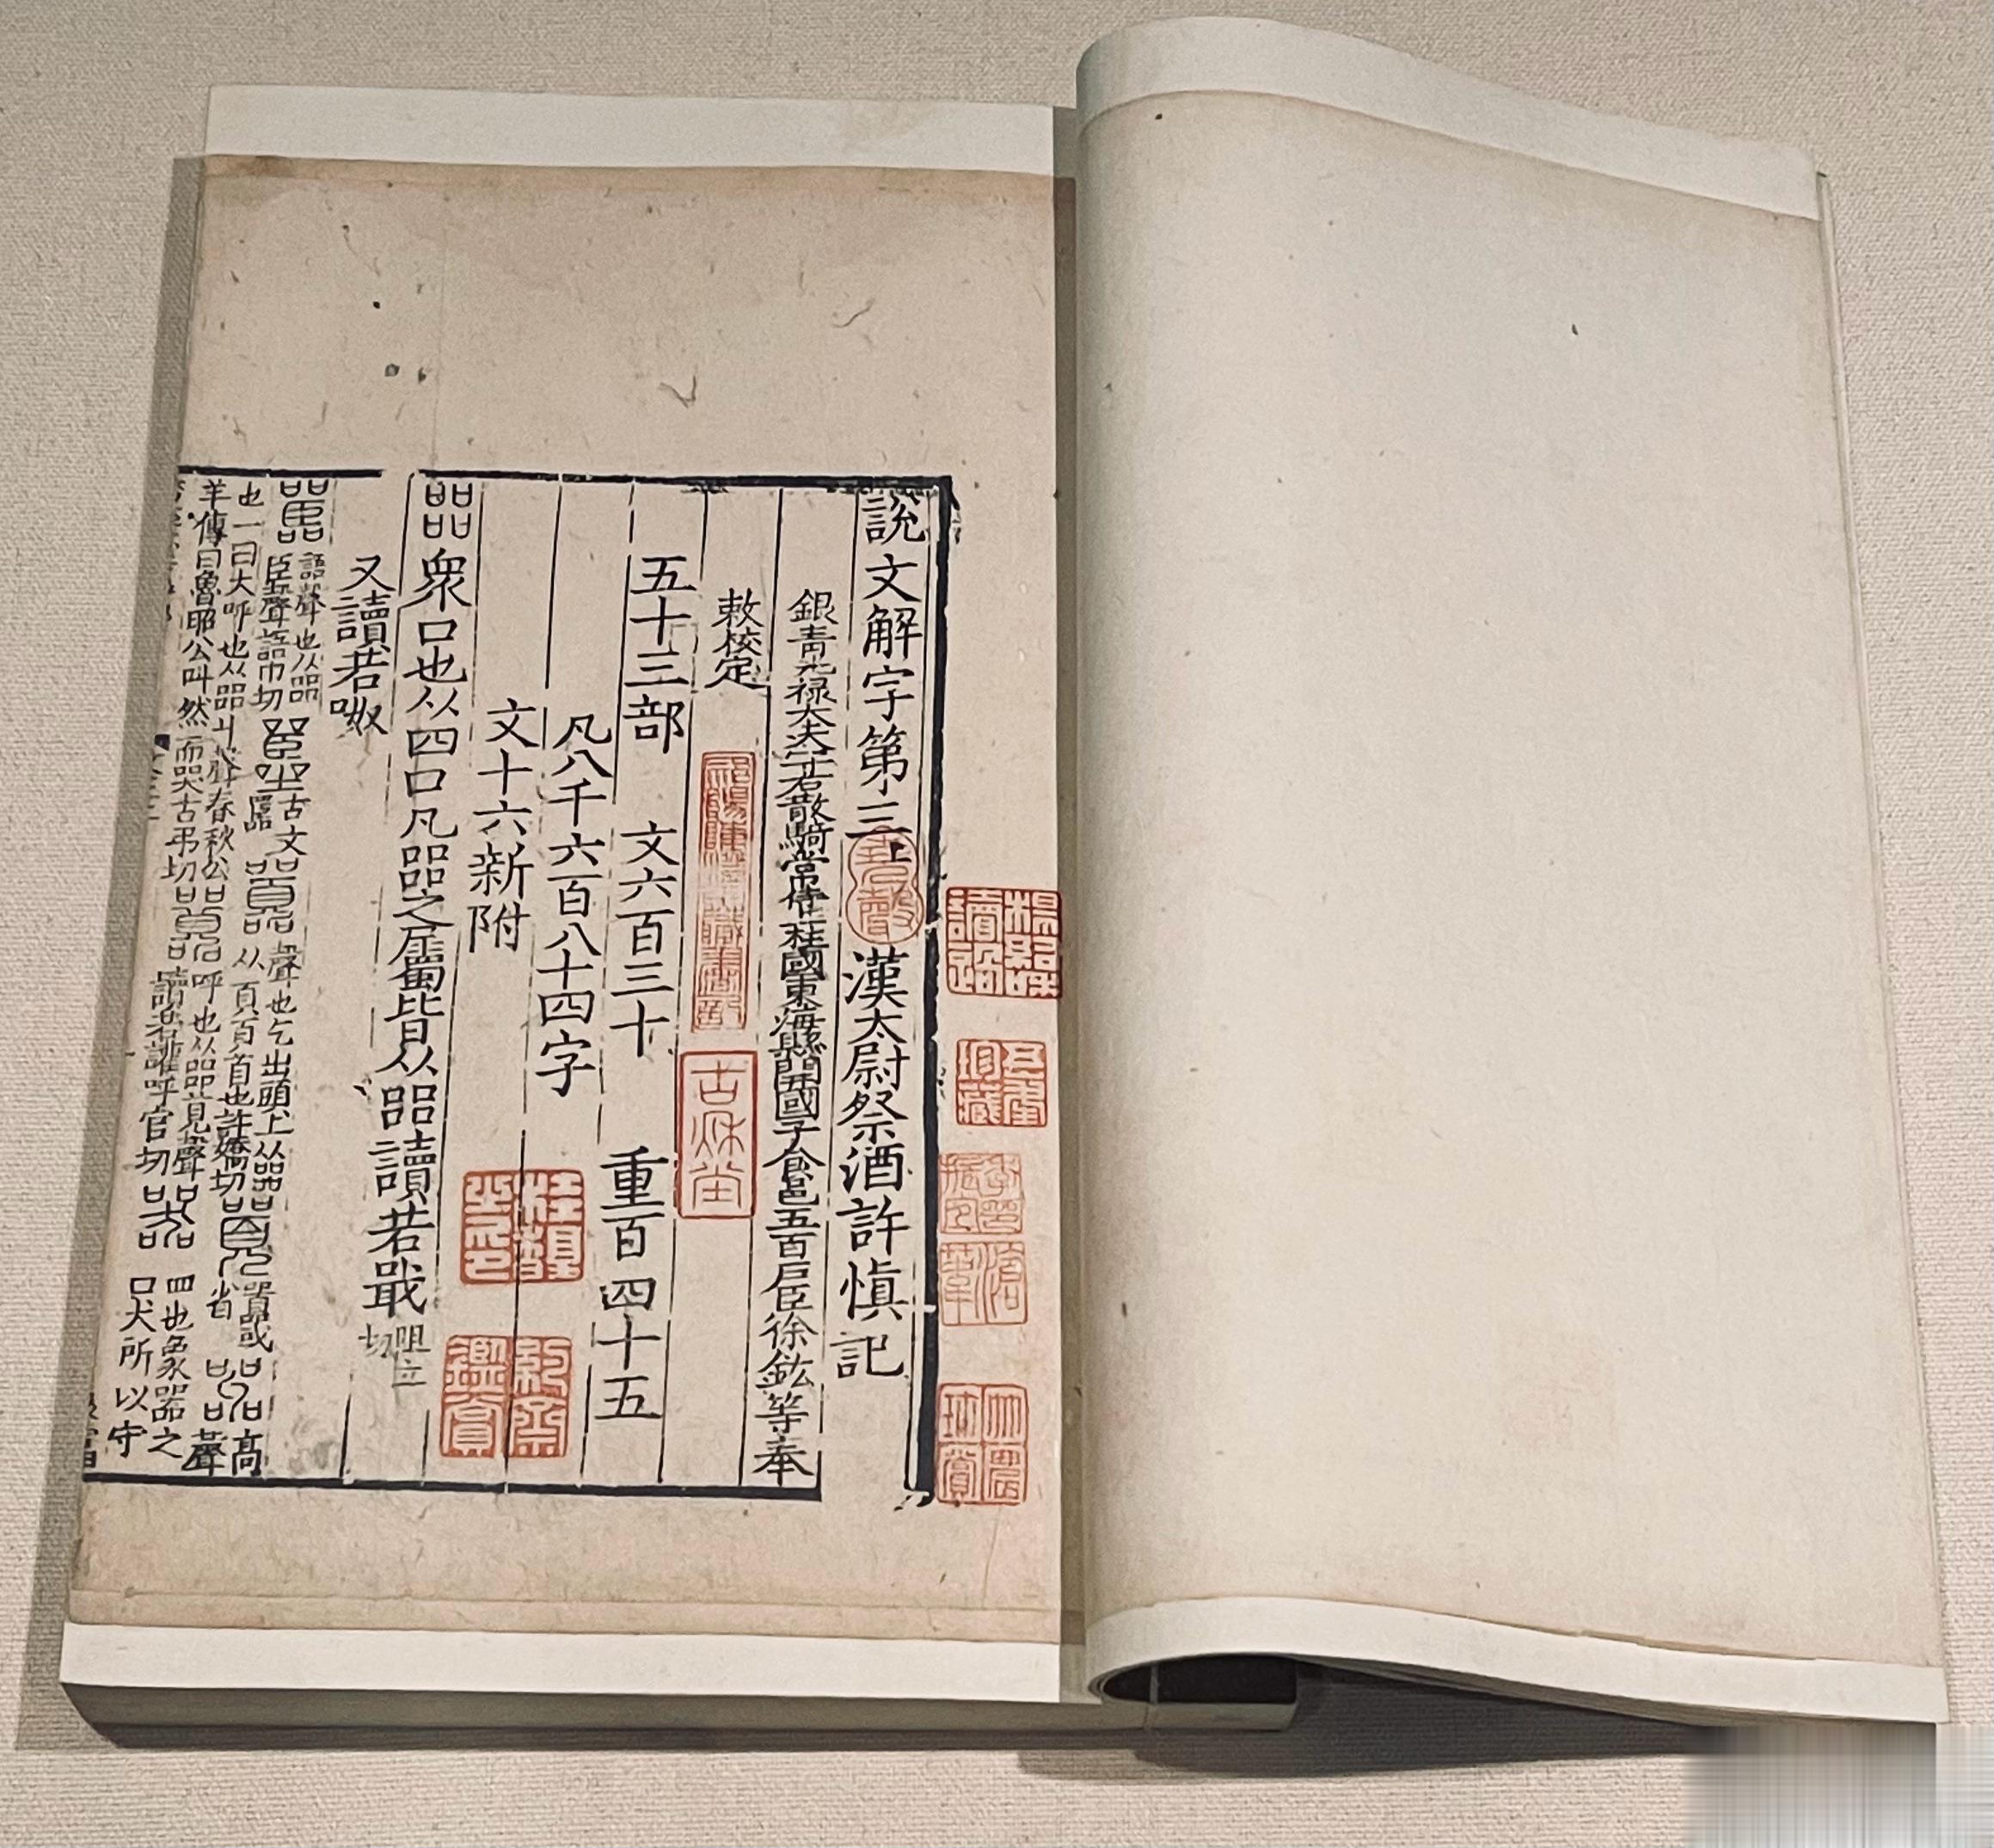 說文解字第三上 漢太尉祭酒許慎記
銀青光禄大夫守右散騎常侍上柱國東海縣開國子食邑五百戶臣徐鉉等奉
敕校定
五十三部 文六百三十 重百四十五
凡八千六百八十四字
文十六新附
㗊衆口也从四口凡㗊之屬皆从㗊讀若戢阻立切
又讀若呶
嚚語聲也从㗊臣聲語巾切 古文嚚 囂聲也气出頭上从㗊
从頁頁首也許嬌切 囂或省 高聲
也一曰大呼也从㗊丩聲春秋公
羊傳曰魯昭公叫然而哭古弔切 呼也从㗊莧聲
讀若讙呼官切 器皿也象器之
口犬所以守
古𤱿堂
楊紹和讀過
彥合珍藏
汪喜孫印
鑑賞